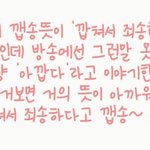 깹송뜻이 '깝쳐서 죄송하
인데 방송에선 그런말 못
'아깝다'라고 이야기한
거보면 거의 뜻이 아까워
쳐서 죄송하다고 깹송~